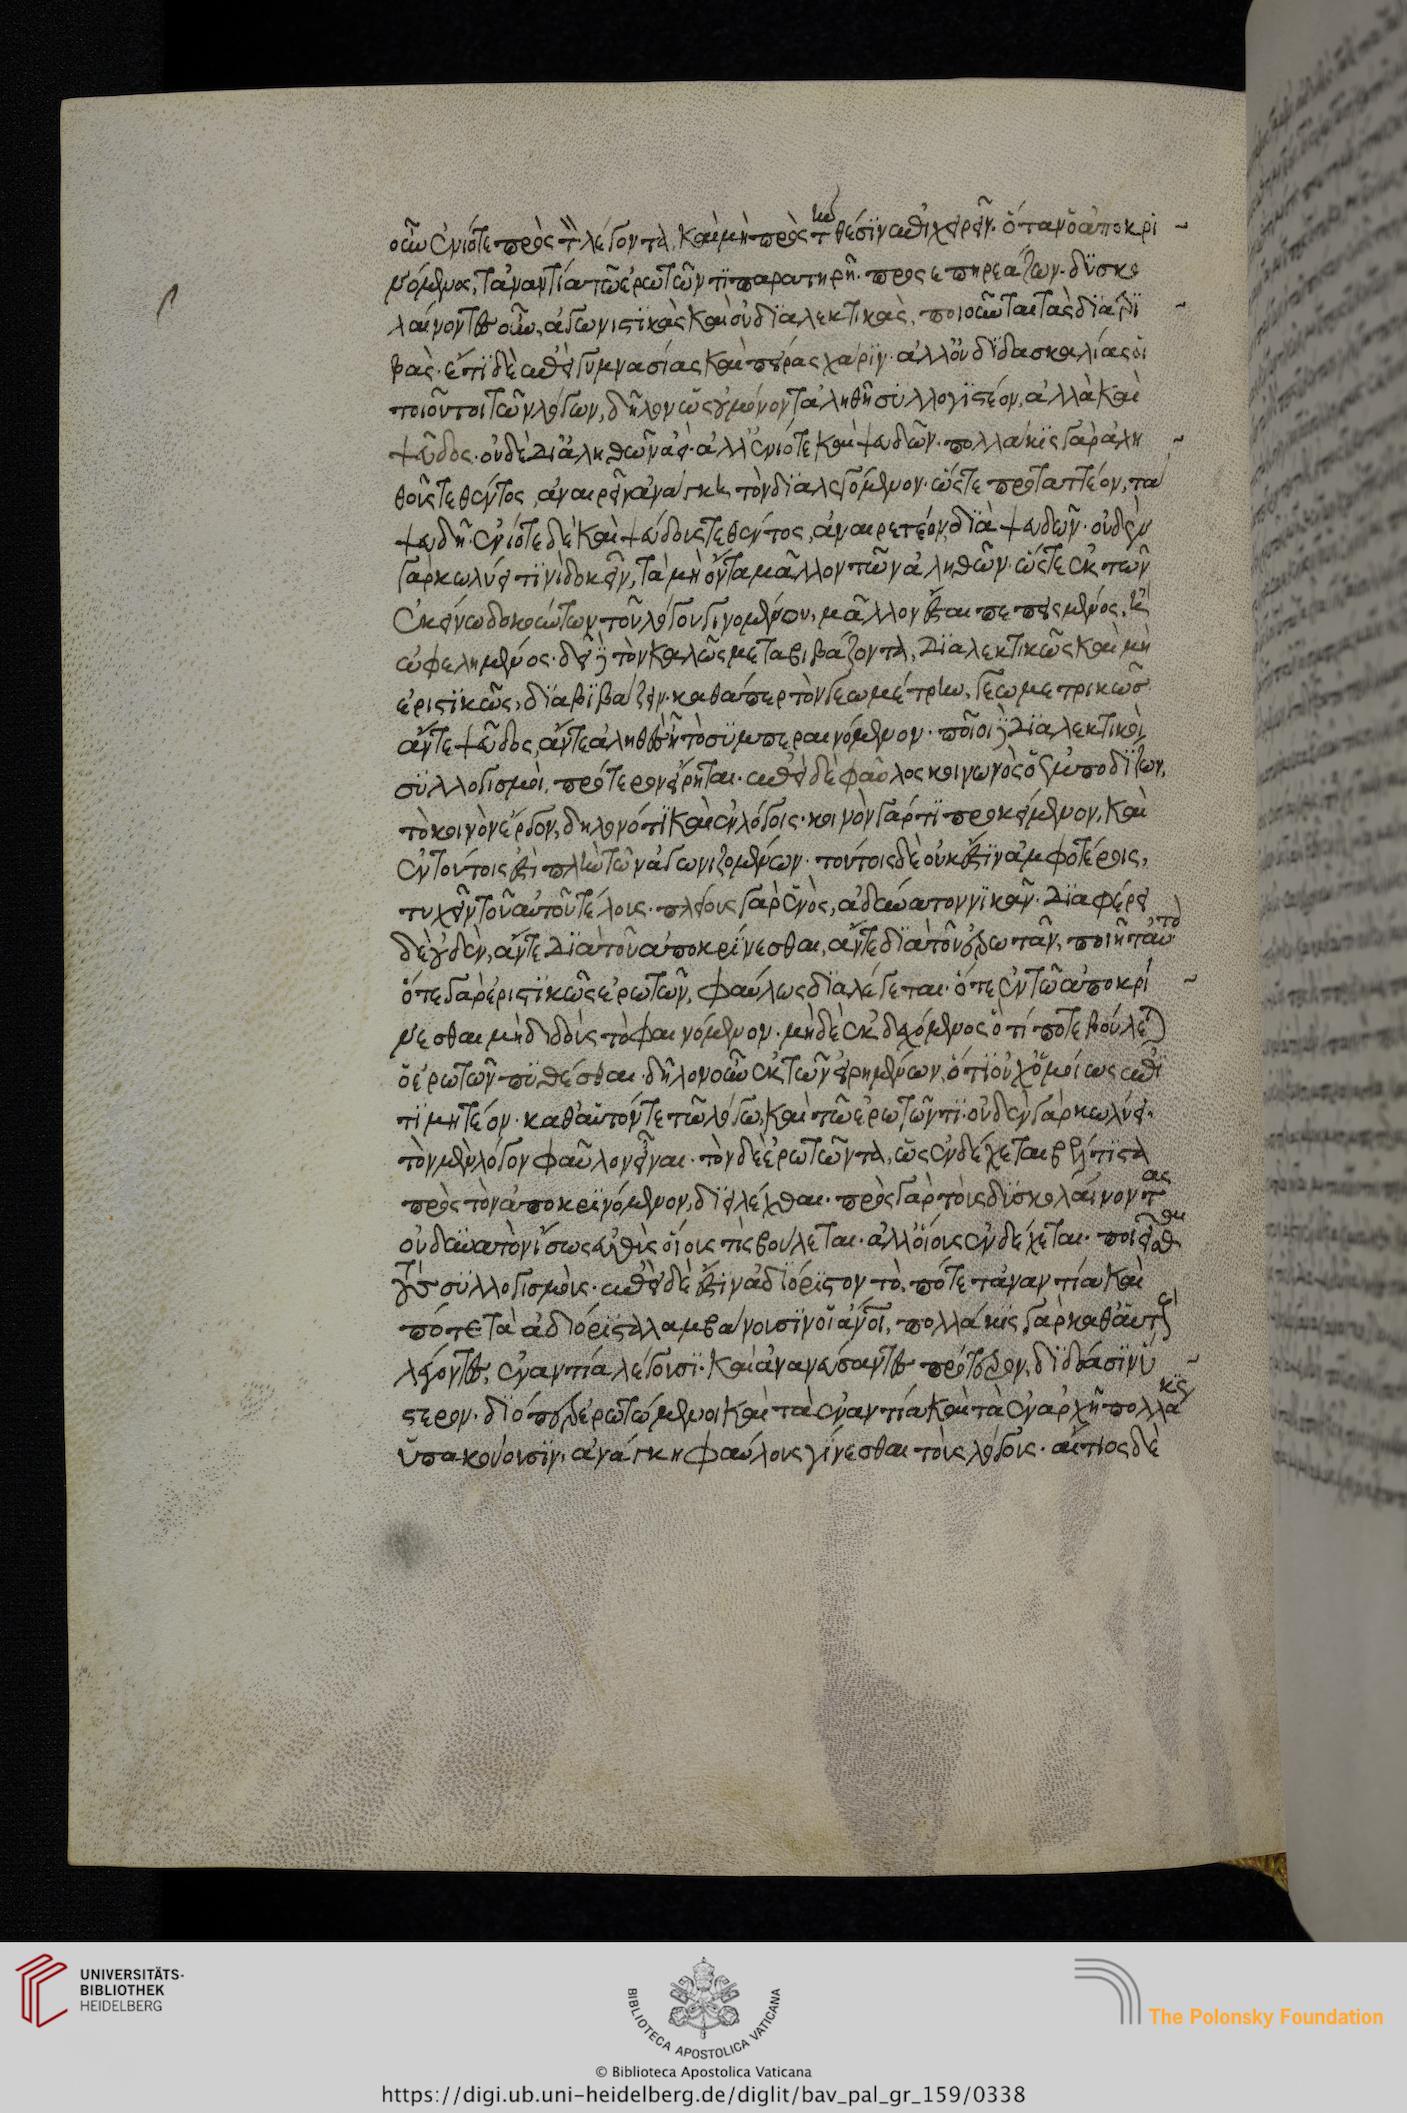 οὖν ἐνίοτε πρὸς τὸν λέγοντα, καὶ μὴ πρὸς τὴν θέσιν ἐπιχειρεῖν· ὅταν ὁ ἀποκρι
νόμενος, τἀναντία τῶ ἐρωτῶντι παρατηρῆ· προσεπηρεάζων· δυσκο
λαίνοντες οὖν, ἀγωνιστικὰς καὶ οὐ διαλεκτικὰς, ποιοῦνται τὰς διατρι
βάς· ἔτι δὲ ἐπεὶ γυμνασίας καὶ πείρας χάριν· ἀλλ' οὐ διδασκαλίας οἱ
τοιοῦτοι τῶν λόγων, δῆλον ὡς οὐ μόνον τἀληθῆ συλλογιστέον, ἀλλὰ καὶ
ψεῦδος· οὐδὲ δι' ἀληθῶν ἀεί· ἀλλ' ἐνίοτε καὶ ψευδῶν· πολλάκις γὰρ ἀλη
θοῦς τεθέντος, ἀναιρεῖν ἀνάγκη τὸν διαλεγόμενον· ὥστε προτατέον, τὰ
ψευδῆ· ἐνίοτε δὲ καὶ ψεύδους τεθέντος, ἀναιρετέον διὰ ψευδῶν· οὐδὲν
γὰρ κωλύει τινὶ δοκεῖν, τὰ μὴ ὄντα μᾶλλον τῶν ἀληθῶν· ὥστε ἐκ τῶν
ἐκείνω δοκούντων τοῦ λόγου γινομένου, μᾶλλον ἔσται πεπεισμένος, ἢ
ὠφελημένος· δεῖ δὲ τὸν καλῶς μεταβιβάζοντα, διαλεκτικῶς καὶ μὴ
ἐριστικῶς, διαβιβάζειν· καθάπερ τὸν γεωμέτρην, γεωμετρικῶς
ἄν τε ψεῦδος, ἄν τε ἀληθὲς ἦ τὸ συμπεραινόμενον· ποῖοι δὲ διαλεκτικοὶ
συλλογισμοὶ, πρότερον εἴρηται· ἐπεὶ δὲ φαῦλος κοινωνὸς ὁ ἐμποδίζων,
τὸ κοινὸν ἔργον, δῆλον ὅτι καὶ ἐν λόγοις· κοινὸν γάρ τι προκείμενον, καὶ
ἐν τούτοις ἐστὶ πλὴν τῶν ἀγωνιζομένων· τούτοις δὲ οὐκ ἔστιν ἀμφοτέροις,
τυχεῖν τοῦ αὐτοῦ τέλους· πλείους γὰρ ἑνὸς, ἀδύνατον νικᾶν· διαφέρει
δὲ οὐδὲν, ἄν τε διὰ τοῦ ἀποκρίνεσθαι, ἄν τε διὰ τοῦ ἐρωτᾶν, ποιῆ ταυτό
ὅ τε γὰρ ἐριστικῶς ἐρωτῶν, φαύλως διαλέγεται· ὅ τε ἐν τῶ ἀποκρί
νεσθαι μὴ διδοὺς τὸ φαινόμενον· μηδὲ ἐκδεχόμενος ὅτί ποτε βούλεται
ὁ ἐρωτῶν πυθέσθαι· δῆλον οὖν ἐκ τῶν εἰρημένων, ὅτι οὐχ ὁμοίως ἐπι
τιμητέον· καθ' αὑτόν τε τῶ λόγω, καὶ τῶ ἐρωτῶντι· οὐδὲν γὰρ κωλύει·
τὸν μὲν λόγον φαῦλον εἶναι· τὸν δὲ ἐρωτῶντα, ὡς ἐνδέχεται βέλτιστα
πρὸς τὸν ἀποκρινόμενον, διειλέχθαι· πρὸς γὰρ τοὺς δυσκολαίνοντας
οὐ δυνατὸν ἴσως εὐθὺς οἵους τις βούλεται· ἀλλ' οἵους ἐνδέχεται· ποιεῖσθαι
τοὺς συλλογισμούς· ἐπεὶ δέ ἐστιν ἀδιόριστον τὸ, πότε τἀναντία καὶ
πότε τὰ ἀδιόριστα λαμβάνουσιν οἱ ἄνθρωποι, πολλάκις γὰρ καθ' αὑτοὺς
λέγοντες, ἐναντία λέγουσι· καὶ ἀνανεύσαντες πρότερον, διδόασιν ὕ
στερον· διόπερ ἐρωτώμενοι καὶ τὰ ἐναντία καὶ τὰ ἐν ἀρχῆ πολλάκις
ὑπακούουσιν, ἀνάγκη φαύλους γίνεσθαι τοὺς λόγους· αἴτιος δὲ
UNIVERSITÄTS-
BIBLIOTHEK
HEIDELBERG
BIBLIOTECA APOSTOLICA VATICANA
The Polonsky Foundation
© Biblioteca Apostolica Vaticana
https://digi.ub.uni-heidelberg.de/diglit/bav_pal_gr_159/0338